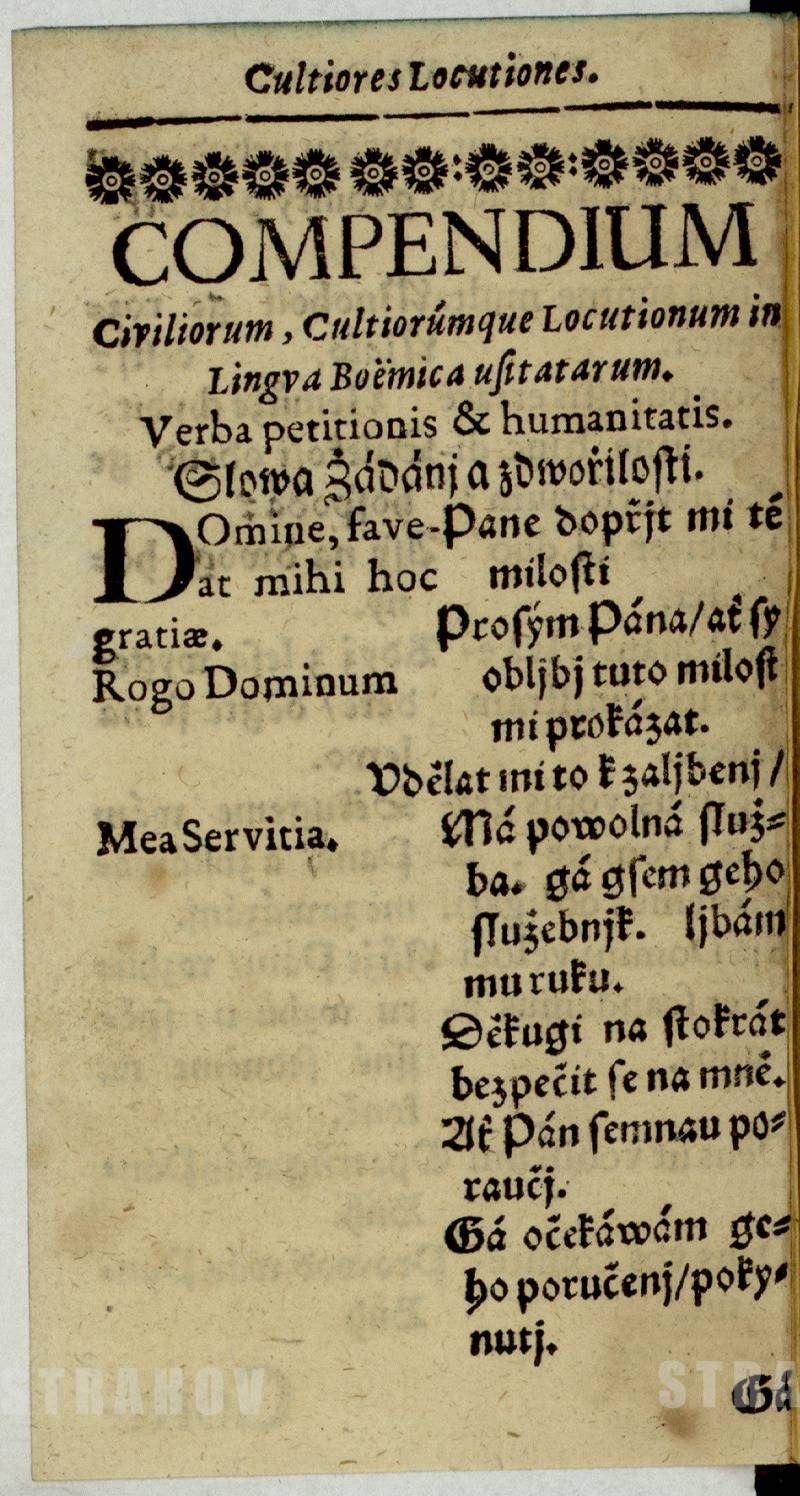 Cultiores Locutiones.
COMPENDIUM
Civiliorum, Cultiorúmque Locutionum in
Lingva Boëmica uſitatarum.
Verba petitionis & humanitatis.
Slowa Žádánj a zdwořiloſti.
DOmine, fave- Pane dopřjt mi té
at mihi hoc miloſti
gratiæ. Proſým Pána/ ať ſy
Rogo Dominum obljbj tuto miloſt
mi prokázat.
Vdělat mi to k zaljbenj/
Mea Servitia. Má powolná ſluž⸗
ba. gá gſem geho
ſlužebnjk. ljbám
mu ruku.
Děkugi na ſtokrát
bezpečit ſe na mně.
Ať Pán ſemnau po⸗
raučj.
Gá očekáwám ge⸗
ho poručenj/ poky⸗
nutj.
Gá
STRAHOV
STRA